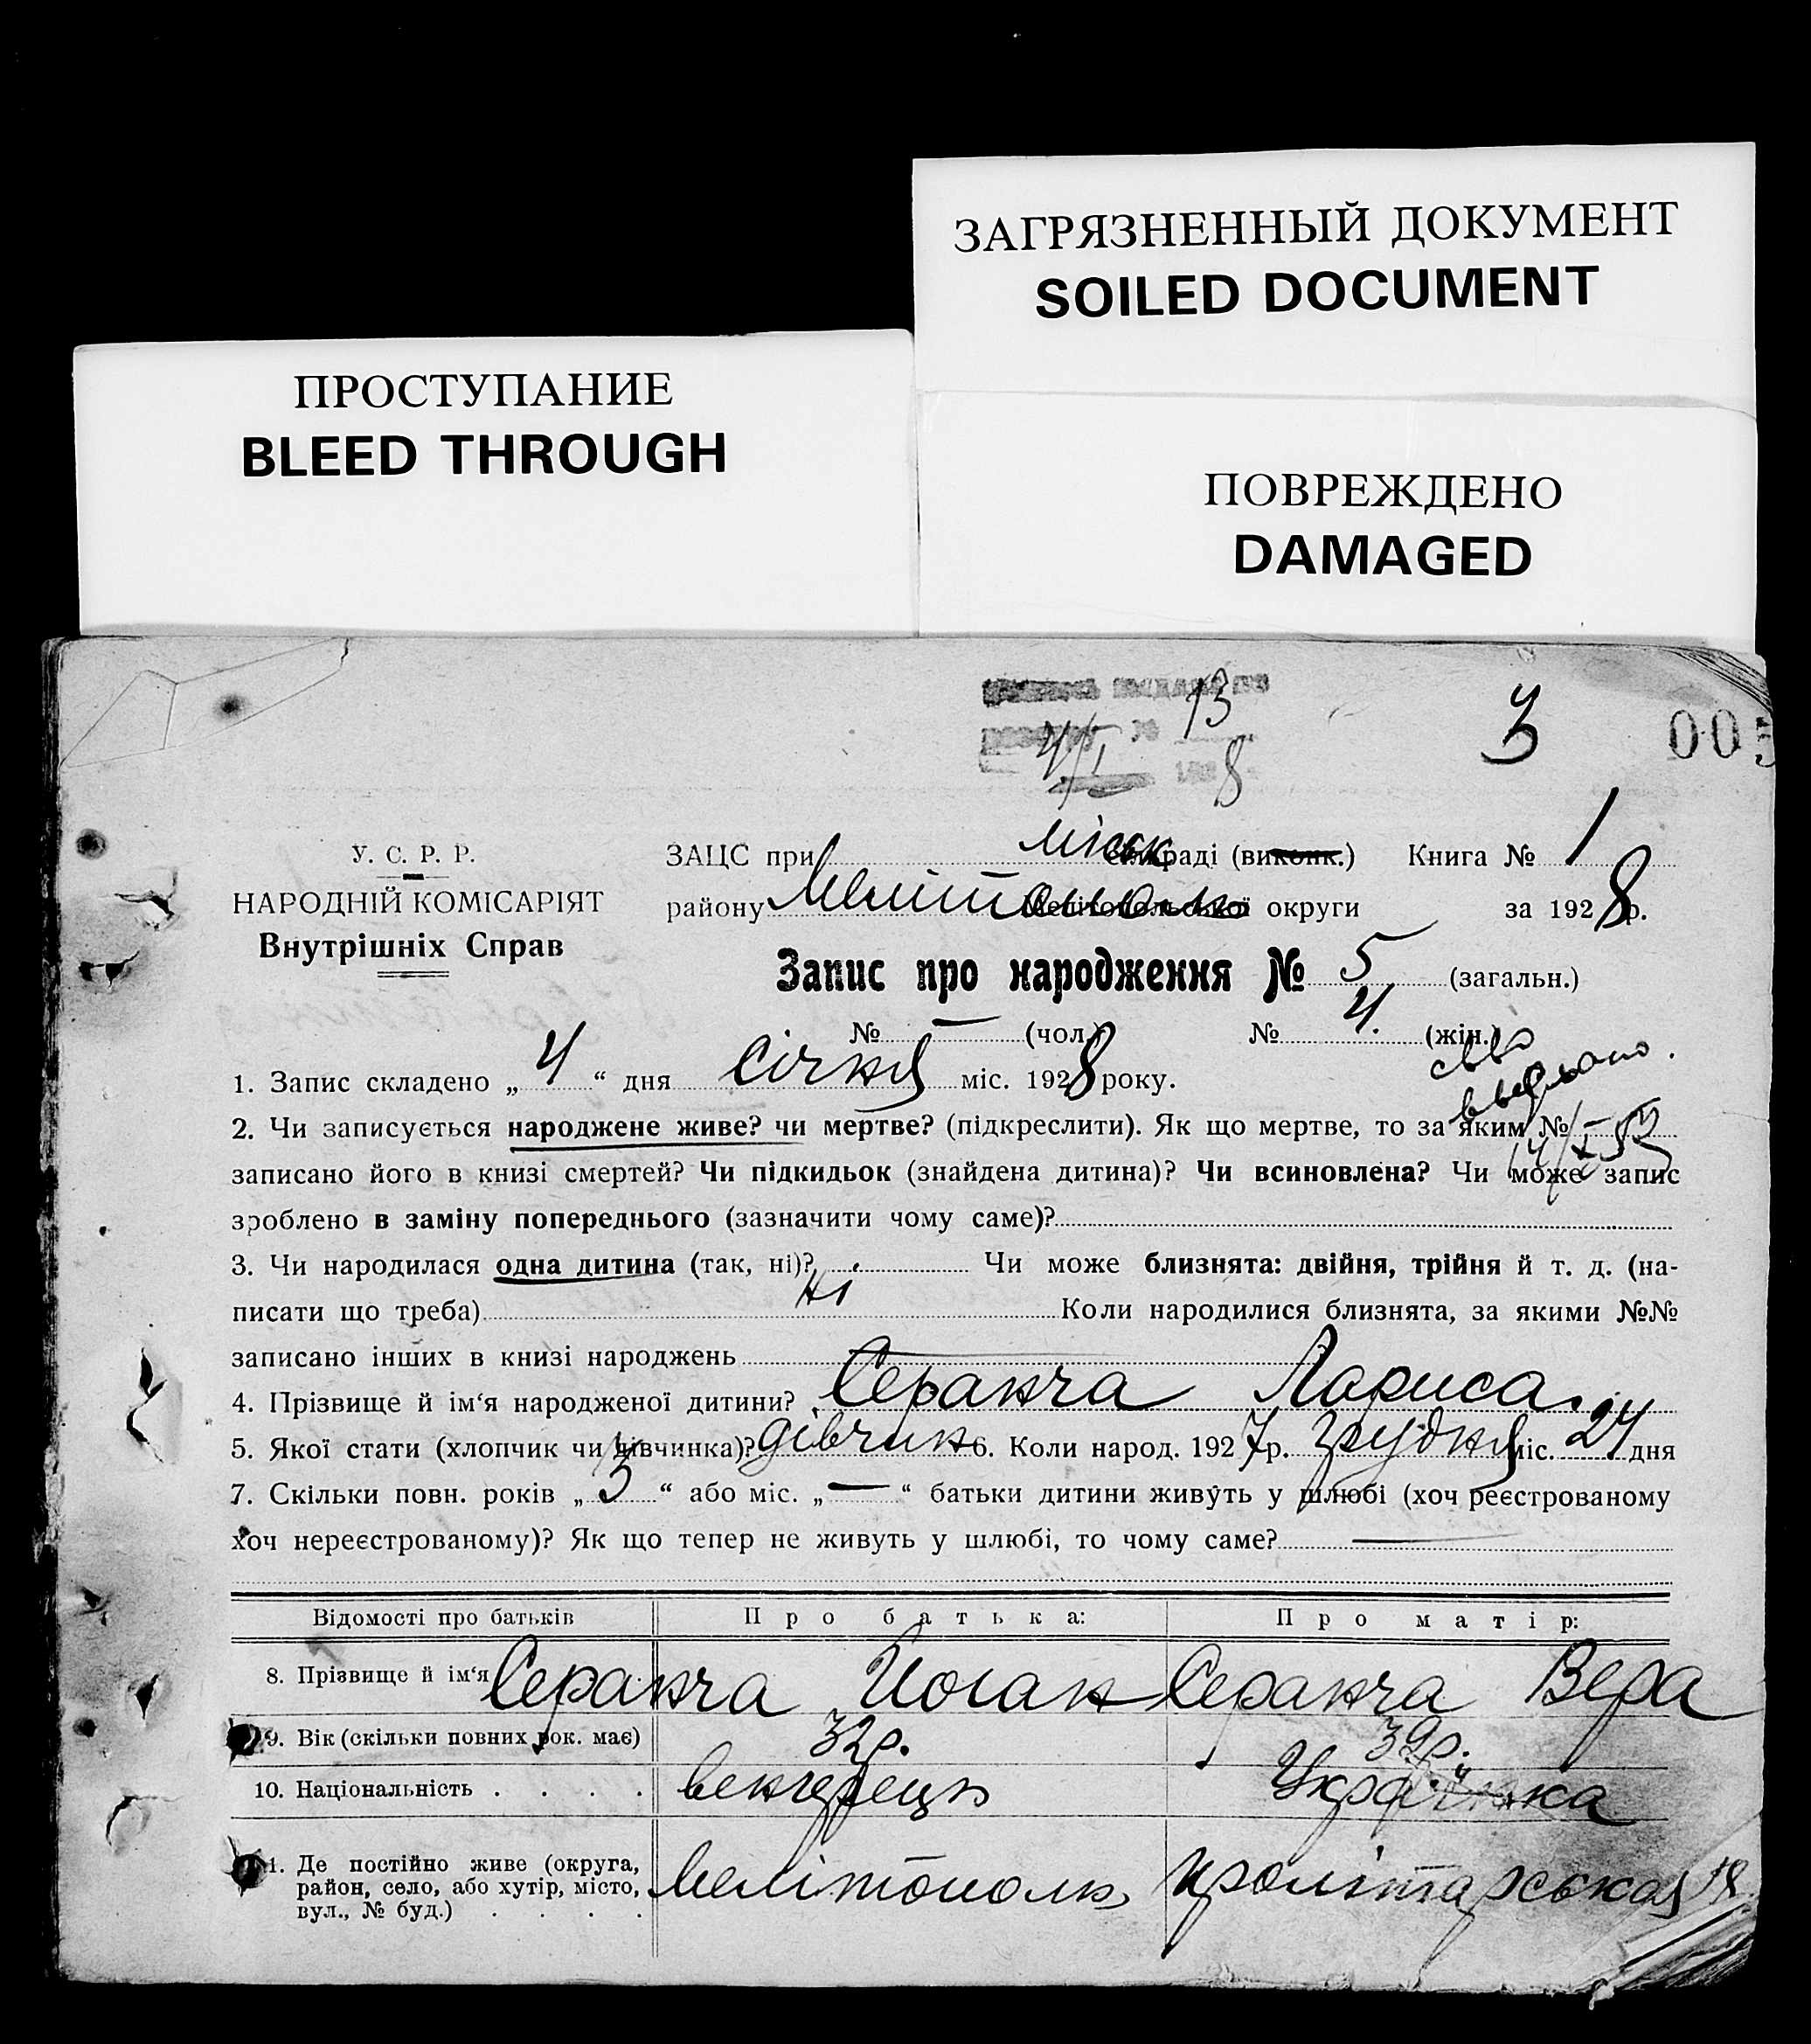 ЗАГРЯЗНЕННЫЙ ДОКУМЕНТ
SOILED DOCUMENT
ПРОСТУПАНИЕ
BLEED THROUGH
ПОВРЕЖДЕНО
DAMAGED
13
3
005
4/I 8
У. С. Р. Р.
НАРОДНІЙ КОМІСАРІЯТ
Внутрішніх Справ
ЗАЦС при міськ раді (виконк.) Книга № 1
району Мелітополь округи за 1928 р.
Запис про народження № 5 (загальн.)
№ — (чол.) № 4. (жін.)
1. Запис складено „ 4 “ дня січня міс. 1928 року.
2. Чи записується народжене живе? чи мертве? (підкреслити). Як що мертве, то за яким №
записано його в книзі смертей? Чи підкидьок (знайдена дитина)? Чи всиновлена? Чи може запис
зроблено в заміну попереднього (зазначити чому саме)?
3. Чи народилася одна дитина (так, ні)? Чи може близнята: двійня, трійня й т. д. (на-
писати що треба) ні Коли народилися близнята, за якими №№
записано інших в книзі народжень
4. Прізвище й ім‘я народженої дитини? Серанча Лариса.
5. Якої стати (хлопчик чи дівчинка)? дівчин 6. Коли народ. 1927 р. грудня міс. 24 дня
7. Скільки повн. років „ 3 “ або міс. „ — “ батьки дитини живуть у шлюбі (хоч реєстрованому
хоч нереєстрованому)? Як що тепер не живуть у шлюбі, то чому саме? —
Відомості про батьків Про батька: Про матір:
8. Прізвище й ім‘я Серанча Иоган Серанча Вера
9. Вік (скільки повних рок. має) 32р. 39р.
10. Національність . . . . венгерець Українка
11. Де постійно живе (округа,
район, село, або хутір, місто,
вул., № буд.) . . . . Мелітополь, пролітарськая 18